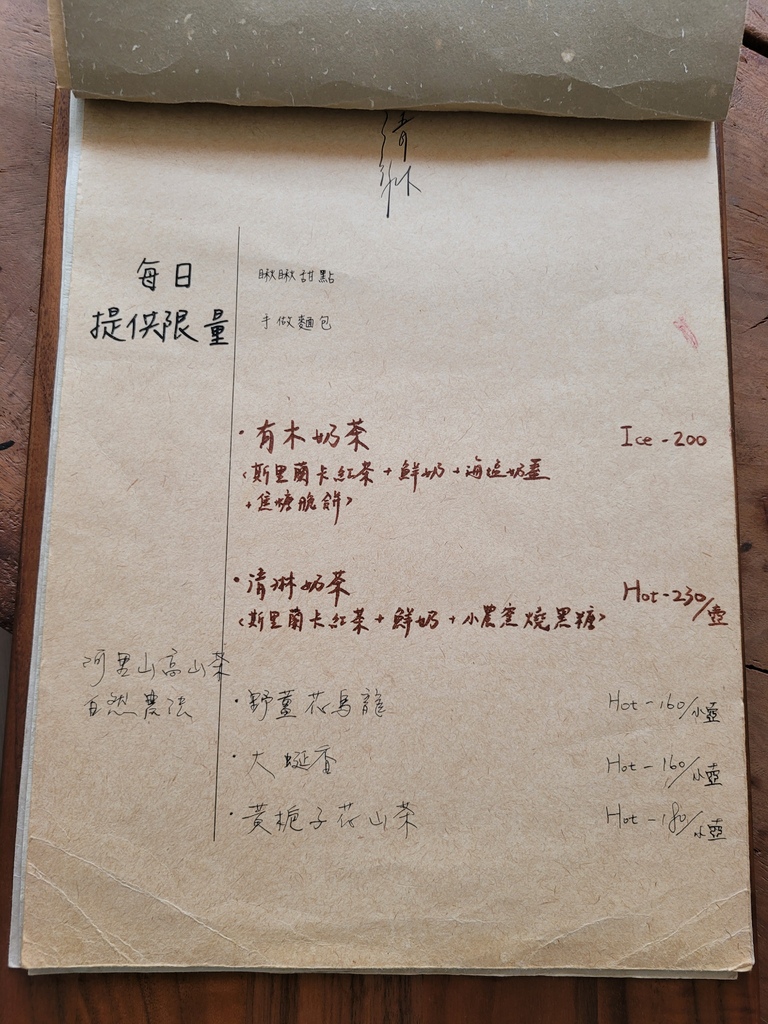 清
琳
每日
提供限量
瞅瞅甜點
手做麵包
·有木奶茶 Ice-200
<斯里蘭卡紅茶+鮮奶+海塩奶蓋
+焦糖脆餅>
·清琳奶茶 Hot-230/壺
<斯里蘭卡紅茶+鮮奶+小農窯燒黑糖>
阿里山高山茶
自然農法
·野薑花烏龍 Hot-160/小壺
·大蜒香 Hot-160/小壺
·黃梔子花山茶 Hot-180/小壺